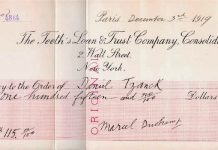 Paris December 3rd 1919
The Teeth's Loan & Trust Company, Consolidated
2, Wall Street.
New York.
to the Order of Daniel Tzanck
one hundred fifteen and no/100 Dollars
ORIGINAL
$115.
Marcel Duchamp